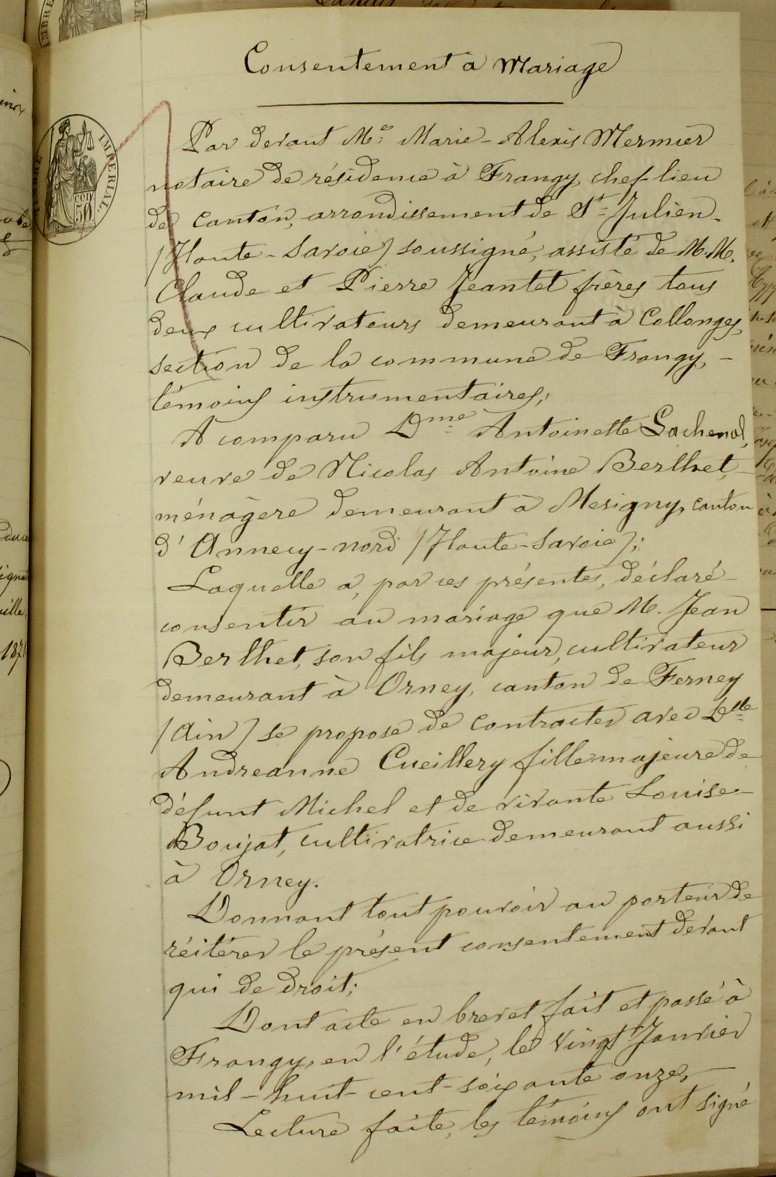 Consentement a Mariage
Par devant Me. Marie-Alexis Mermier
notaire de résidence à Frangy, chef lieu
de canton, arrondissement de St. Julien-
(Haute-Savoie) soussigné, assisté de M.M.
Claude et Pierre Jeantet frères tous
deux cultivateurs demeurant à Collonges,
section de la commune de Frangy, -
témoins instrumentaires;
A comparu Dme Antoinette Lachenal,
veuve de Nicolas Antoine Berthet,
ménagère demeurant à Mesigny, canton
d'Annecy-nord (Haute-Savoie);
Laquelle a, par ces présentes, déclaré-
consentir au mariage que M. Jean
Berthet, son fils majeur, cultivateur
demeurant à Orney, canton de Ferney
(Ain) se propose de contracter avec Dlle
Andreanne Cueillery fille majeure de
défunt Michel et de vivante Louise-
Boujat, cultivatrice demeurant aussi
à Orney.
Donnant tout pouvoir au porteur de
réitérer le présent consentement devant
qui de droit;
Dont acte en brevet fait et passé à
Frangy, en l'étude, le vingt Janvier
mil-huit-cent-soixante onze, -
Lecture faite, les témoins ont signé
TIMBRE IMPERIAL
50